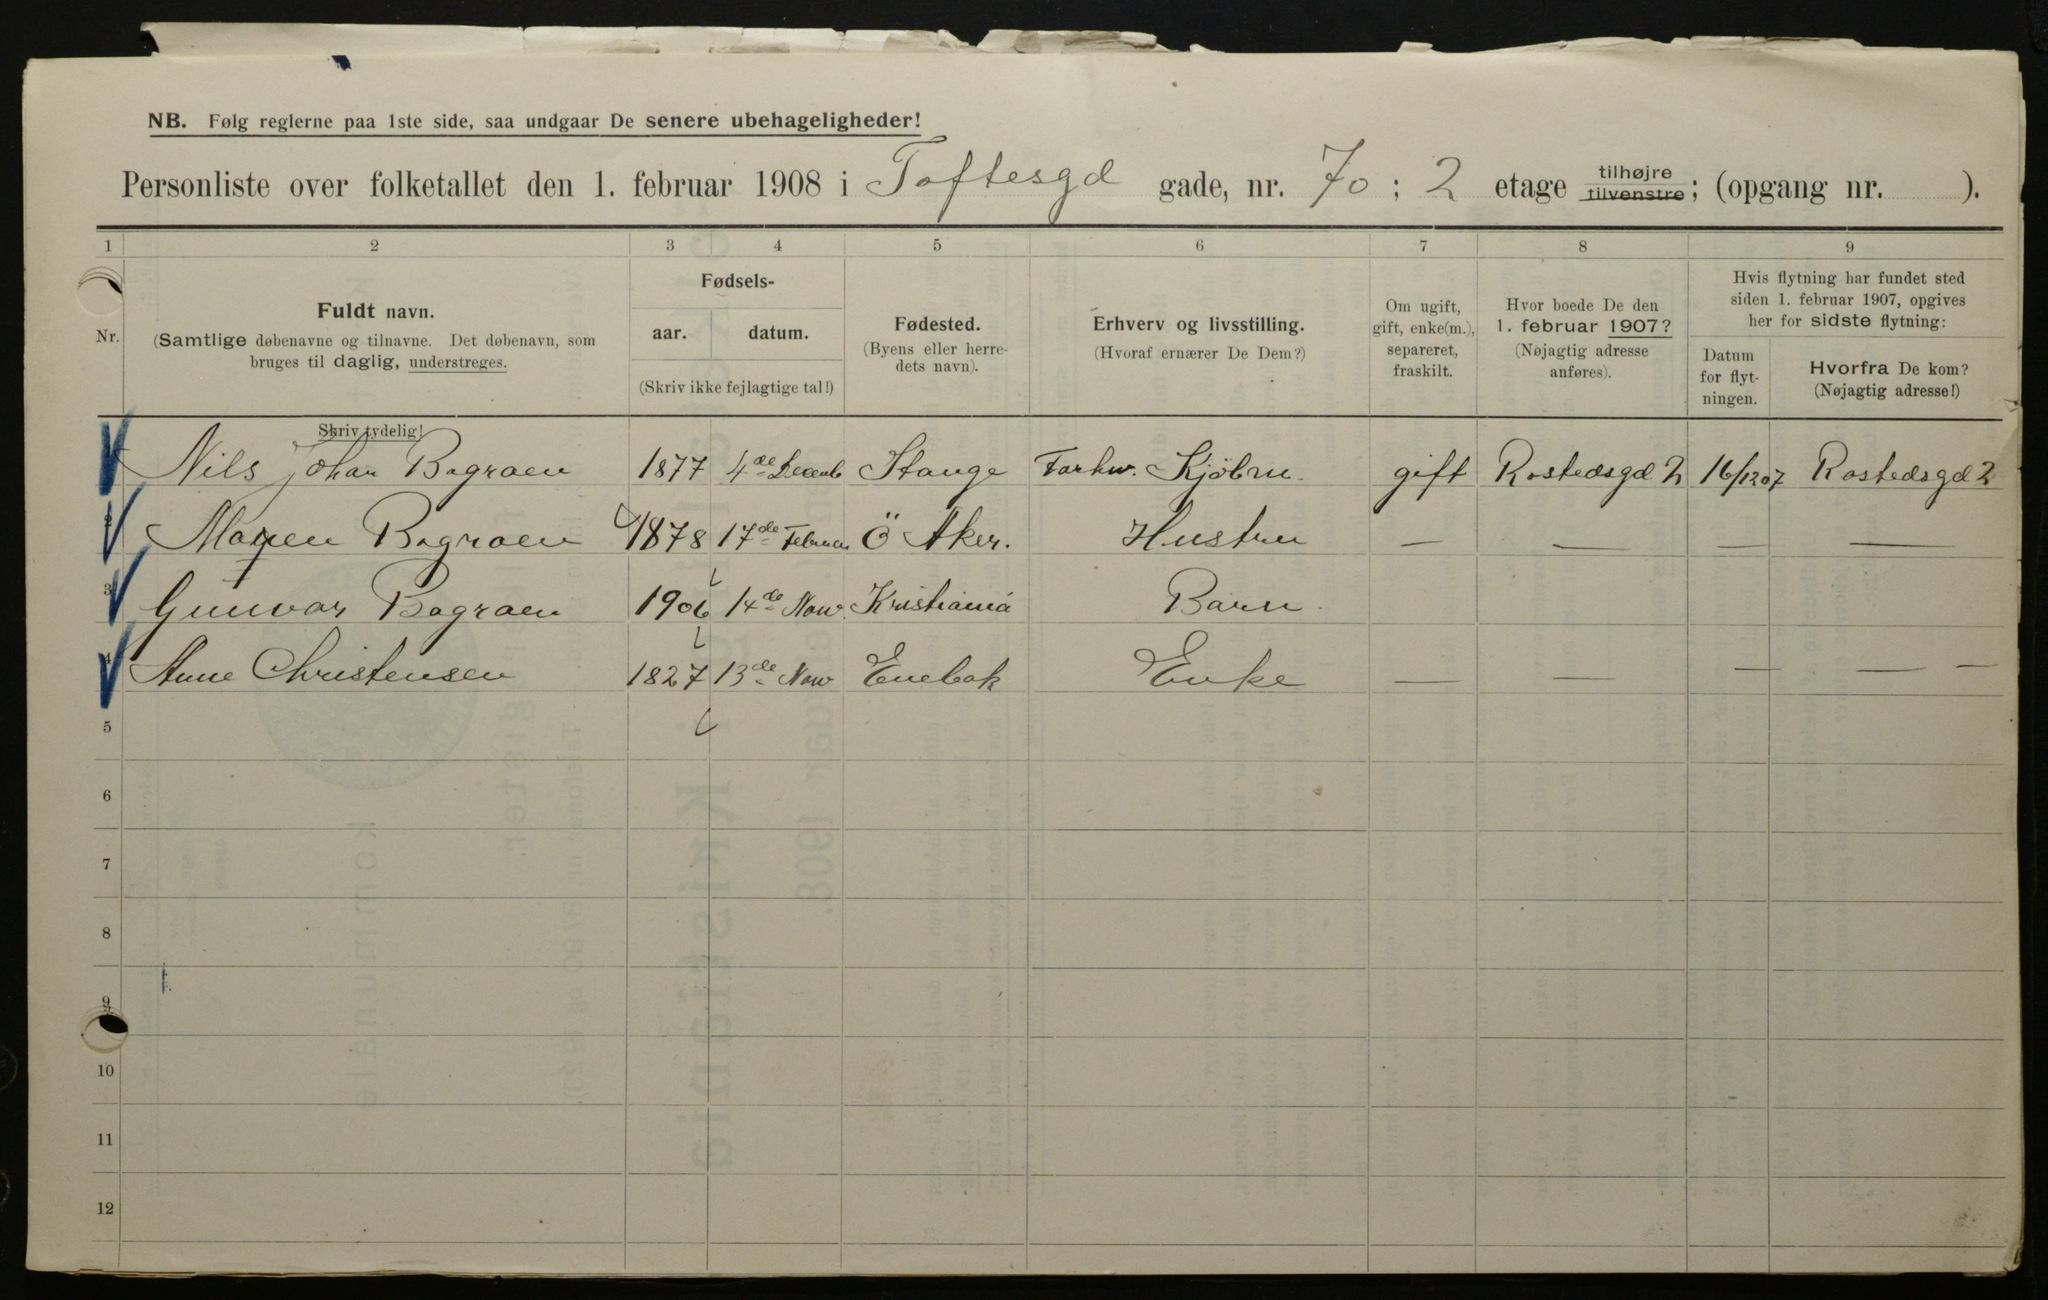 NB. Følg reglerne paa 1ste side, saa undgaar De senere ubehageligheder!
Personliste over folketallet den 1. februar 1908 i Toftesgd gade, nr. 70 ; 2 etage tilhøjre tilvenstre ; (opgang nr. ).
1 2 3 4 5 6 7 8 9
Nr.
Fuldt navn.
(Samtlige døbenavne og tilnavne. Det døbenavn, som
bruges til daglig, understreges.
Skriv tydelig!
Fødsels-
aar. datum.
(Skriv ikke fejlagtige tal!)
Fødested.
(Byens eller herre-
dets navn).
Erhverv og livsstilling.
(Hvoraf ernærer De Dem?)
Om ugift,
gift, enke(m.),
separeret,
fraskilt.
Hvor boede De den
1. februar 1907?
(Nøjagtig adresse
anføres).
Hvis flytning har fundet sted
siden 1. februar 1907, opgives
her for sidste flytning:
Datum
for flyt-
ningen.
Hvorfra De kom?
(Nøjagtig adresse!)
Nils Johan Bagraen 1877 4de Decemb Stange Forhv. Kjöbm. gift Rostedsgd 2 16/12 07 Rostedsgd 2
2 Maren Bagraen 1878 17de Februar Ö Aker. Hustru — — — —
3 Gunvor Bagraen 1906 14de Nov. Kristiania Barn.
4 Anne Christensen 1827 13de Nov Enebak Enke — — — — —
5
6
7
8
9
10
11
12